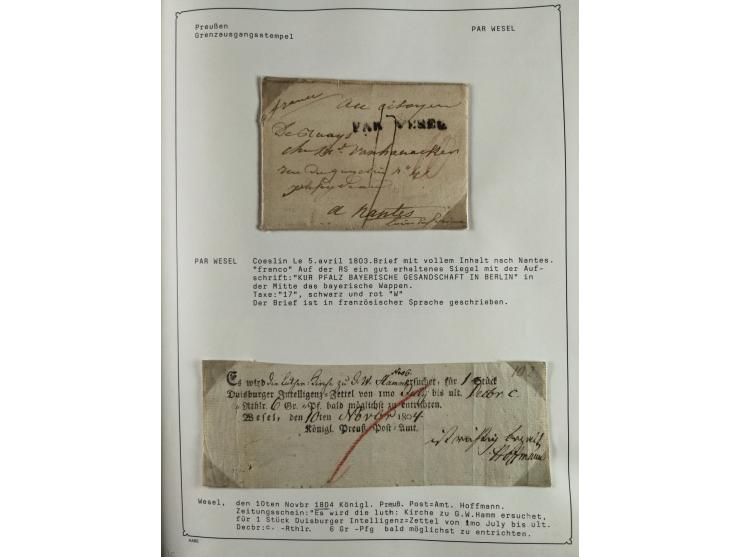 Preußen
Grenzausgangsstempel
PAR WESEL
franco
Au citoyen
PAR WESEL
a nantes
PAR WESEL Coeslin Le 5.avril 1803.Brief mit vollem Inhalt nach Nantes.
"franco" Auf der RS ein gut erhaltenes Siegel mit der Auf-
schrift:"KUR PFALZ BAYERISCHE GESANDSCHAFT IN BERLIN" in
der Mitte das bayerische Wappen.
Taxe:"17", schwarz und rot "W"
Der Brief ist in französischer Sprache geschrieben.
Es wird die luther Kirche zu G. W. Hamm ersuchet, für 1 Stück
Duisburger Intelligenz-Zettel von 1mo July bis ult. Decbr c.
-Rthlr. 6 Gr. -Pf. bald möglichst zu entrichten.
Wesel, den 10ten Novbr 1804
Königl. Preuß. Post-Amt.
ist richtig bezahlt
Hoffmann
Wesel, den 10ten Novbr 1804 Königl. Preuß. Post=Amt. Hoffmann.
Zeitungsschein:"Es wird die luth: Kirche zu G.W.Hamm ersuchet,
für 1 Stück Duisburger Intelligenz=Zettel von 1mo July bis ult.
Decbr:c. -Rthlr. 6 Gr -Pfg bald möglichst zu entrichten.
KABE